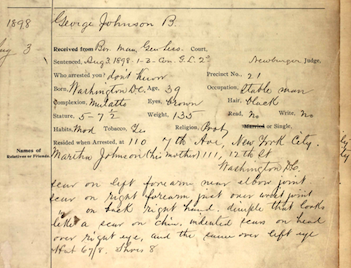 1898 George Johnson B.
Aug 3
Received from Bor. Man. Gen. Sess. Court,
Sentenced, Aug 3. 1898. 1-3- An. G.L. 2° Newburger Judge.
Who arrested you? don't know Precinct No. 21
Born, Washington D.C. Age, 39 Occupation, Stable man
Complexion, Mulatto Eyes, Brown Hair, black
Stature, 5-7½ Weight, 135 Read, No Write, No
Habits, Mod Tobacco, Yes Religion, Prot Married or Single.
Resided when Arrested, at 110 7th Ave, New York City.
Names of
Relatives or Friends
Martha Johnson (his mother) 111, 12th St
Washington D.C.
scar on left forearm near elbow joint
scar on right forearm just over wrist joint
on back right hand. dimple that looks
like a scar on chin, indented scar on head
over right eye, and the same over left eye
Hat 6 7/8. Shoes 8